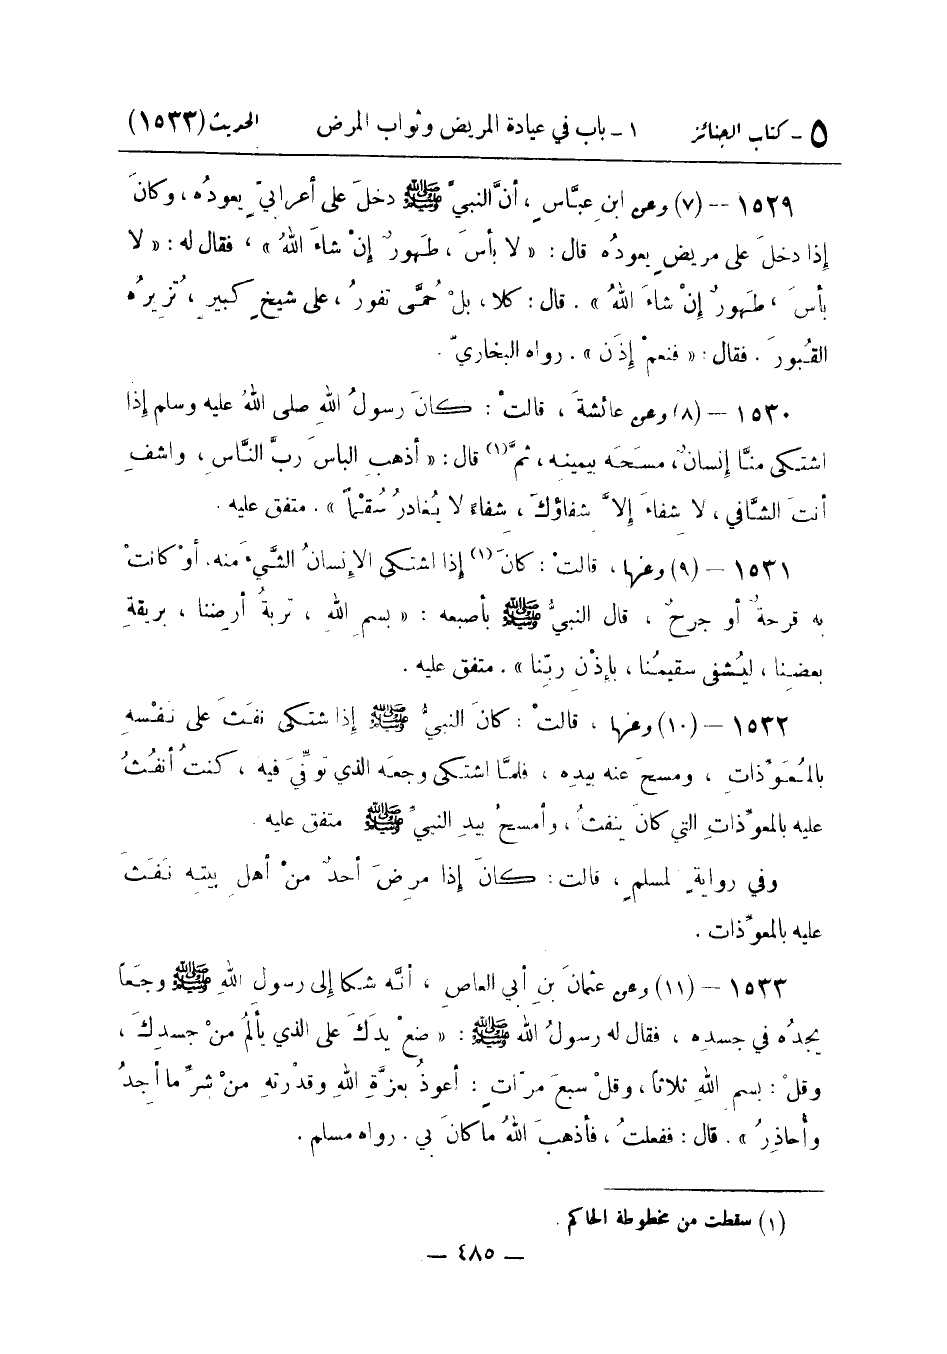 ٥ - كتاب الجنائز ١ - باب في عيادة المريض وثواب المرض الحديث (١٥٣٣)
١٥٢٩ -- (٧) وعن ابنِ عبَّاسٍ، أنَّ النبيَّ ﷺ دخلَ على أعرابيٍّ يعودُه، وكانَ
إذا دخلَ على مريضٍ يعودُه قال: « لا بأسَ، طَهورٌ إنْ شاءَ اللهُ »، فقال له: « لا
بأسَ، طَهورٌ إنْ شاءَ اللهُ ». قال: كلا، بلْ حُمَّى تفورُ، على شيخٍ كبيرٍ، تُزيرُه
القُبورَ. فقال: « فنعمْ إِذَن ». رواه البخاريّ.
١٥٣٠ – (٨) وعن عائشةَ، قالتْ: كانَ رسولُ اللهِ صلى اللهُ عليه وسلم إذا
اشتكى منَّا إنسانٌ، مسَحَه بيمينِه، ثمَّ(١) قال: « أذهبِ الباسَ ربَّ النَّاسِ، واشفِ
أنتَ الشَّافي، لا شفاءَ إلاَّ شفاؤكَ، شفاءً لا يُغادرُ سُقْماً ». متفق عليه.
١٥٣١ – (٩) وعنها، قالتْ: كانَ(١) إذا اشتكى الإنسانُ الشَّيءَ منه، أوْ كانتْ
به قرحةٌ أو جرحٌ، قال النبيُّ ﷺ بأصبعه: « بسمِ اللهِ، تربةُ أرضنا، بريقةِ
بعضِنا، ليُشفى سقيمُنا، بإذْنِ ربِّنا ». متفق عليه.
١٥٣٢ – (١٠) وعنها، قالتْ: كانَ النبيُّ ﷺ إذا شتكى نفَثَ على نَفْسِه
بالمُعَوِّذاتِ، ومسحَ عنه بيدِه، فلمَّا اشتكى وجعَه الذي توفِّيَ فيه، كنتُ أنفُثُ
عليه بالمعوِّذاتِ التي كانَ ينفثُ، وأمسحُ بيدِ النبيِّ ﷺ متفق عليه.
وفي روايةٍ لمسلمٍ، قالت: كانَ إذا مرِضَ أحدٌ منْ أهلِ بيتِه نَفَثَ
عليه بالمعوِّذات.
١٥٣٣ – (١١) وعن عثمانَ بنِ أبي العاصِ، أنَّه شكا إلى رسولِ اللهِ ﷺ وجَعاً
يجدُه في جسدِه، فقال له رسولُ الله ﷺ: « ضعْ يدَكَ على الذي يألمُ منْ جسدِكَ،
وقلْ: بسمِ اللهِ ثلاثاً، وقلْ سبعَ مرّاتٍ: أعوذُ بعزَّةِ اللهِ وقدْرتِه منْ شرِّ ما أجدُ
وأُحاذِرُ ». قال: ففعلتُ، فأذهبَ اللهُ ما كانَ بي. رواه مسلم.
(١) سقطت من مخطوطة الحاكم.
– ٤٨٥ –